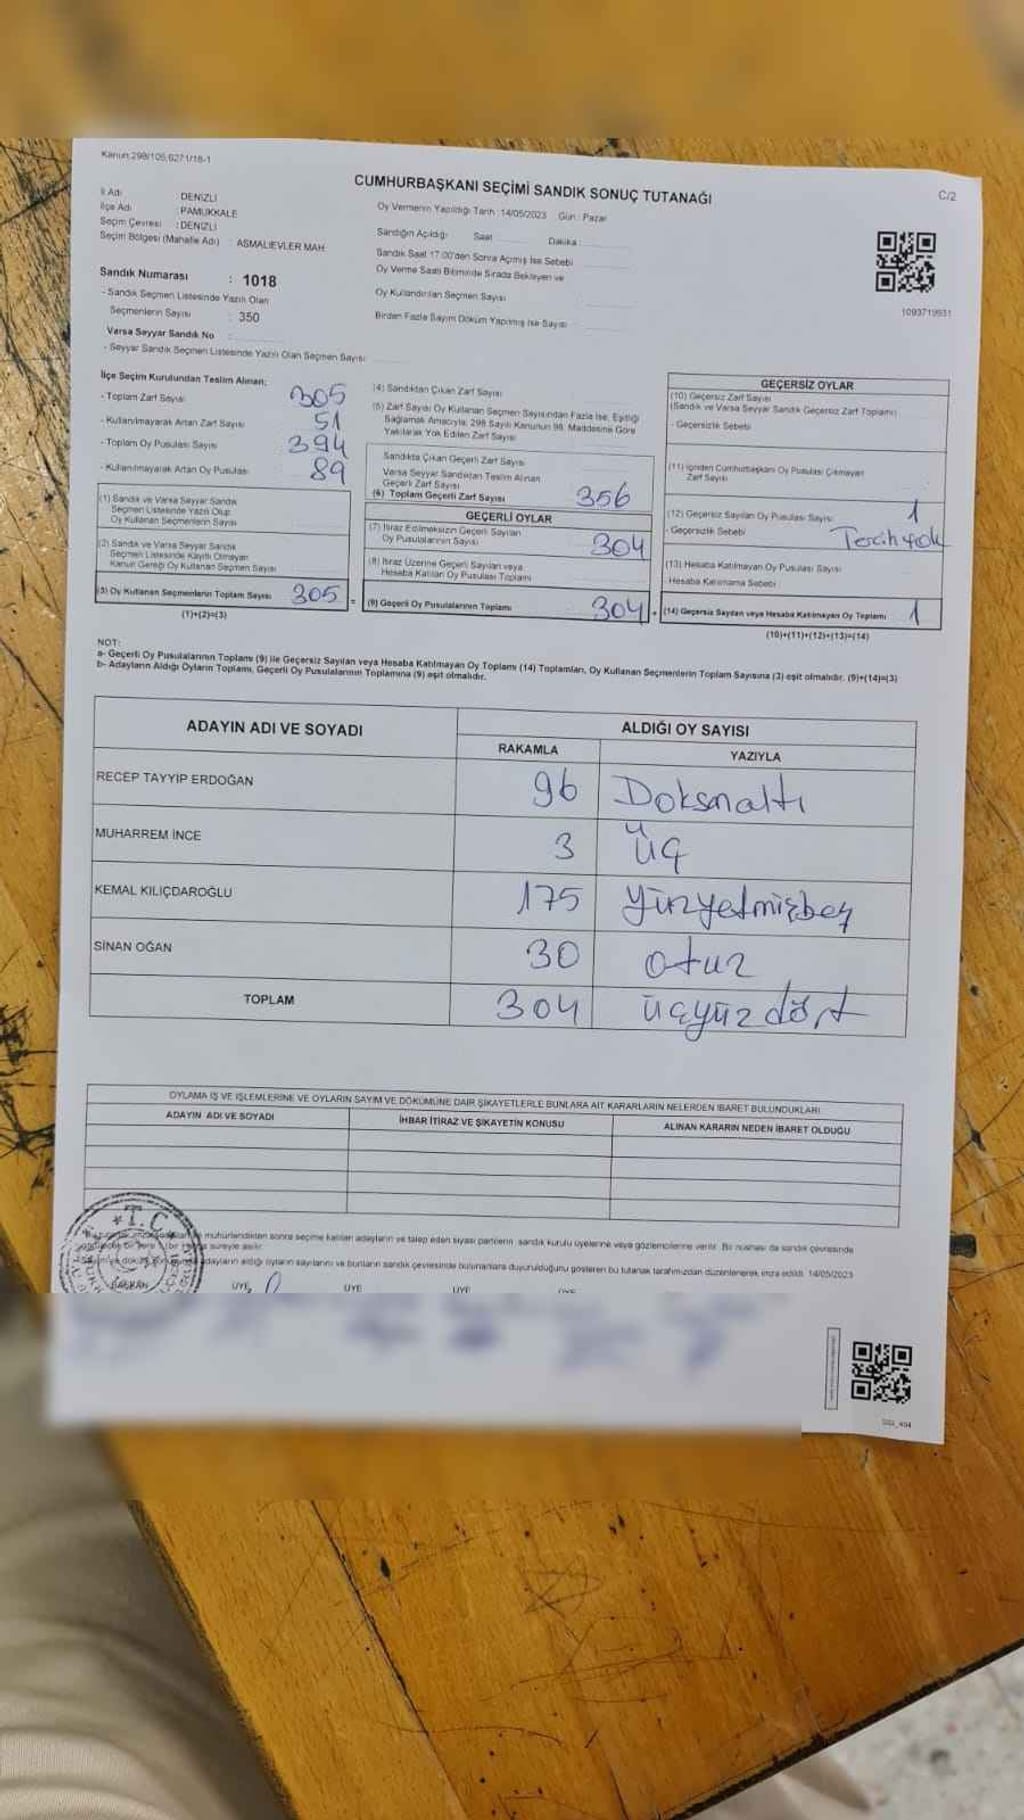 Kanun:298/105,6271/18-1
C/2
CUMHURBAŞKANI SEÇİMİ SANDIK SONUÇ TUTANAĞI
İl Adı DENİZLİ
İlçe Adı : PAMUKKALE
Seçim Çevresi : DENİZLİ
Seçim Bölgesi (Mahalle Adı) : ASMALIEVLER MAH
Sandık Numarası : 1018
- Sandık Seçmen Listesinde Yazılı Olan
Seçmenlerin Sayısı : 350
Varsa Seyyar Sandık No :
- Seyyar Sandık Seçmen Listesinde Yazılı Olan Seçmen Sayısı
Oy Vermenin Yapıldığı Tarih :14/05/2023 Gün : Pazar
Sandığın Açıldığı Saat Dakika
Sandık Saat 17.00'den Sonra Açılmış İse Sebebi
Oy Verme Saati Bitiminde Sırada Bekleyen ve
Oy Kullandırılan Seçmen Sayısı
Birden Fazla Sayım Döküm Yapılmış İse Sayısı
1093719931
İlçe Seçim Kurulundan Teslim Alınan;
- Toplam Zarf Sayısı 305
- Kullanılmayarak Artan Zarf Sayısı 51
- Toplam Oy Pusulası Sayısı 394
- Kullanılmayarak Artan Oy Pusulası 89
(1) Sandık ve Varsa Seyyar Sandık
Seçmen Listesinde Yazılı Olup
Oy Kullanan Seçmenlerin Sayısı
(2) Sandık ve Varsa Seyyar Sandık
Seçmen Listesinde Kayıtlı Olmayan
Kanun Gereği Oy Kullanan Seçmen Sayısı
(3) Oy Kullanan Seçmenlerin Toplam Sayısı 305 =
(1)+(2)=(3)
(4) Sandıktan Çıkan Zarf Sayısı
(5) Zarf Sayısı Oy Kullanan Seçmen Sayısından Fazla İse, Eşitliği
Sağlamak Amacıyla; 298 Sayılı Kanunun 98. Maddesine Göre
Yakılarak Yok Edilen Zarf Sayısı
Sandıkta Çıkan Geçerli Zarf Sayısı
Varsa Seyyar Sandıktan Teslim Alınan
Geçerli Zarf Sayısı
(6) Toplam Geçerli Zarf Sayısı 356
GEÇERLİ OYLAR
(7) İtiraz Edilmeksizin Geçerli Sayılan
Oy Pusulalarının Sayısı 304
(8) İtiraz Üzerine Geçerli Sayılan veya
Hesaba Katılan Oy Pusulası Toplamı
(9) Geçerli Oy Pusulalarının Toplamı 304 +
GEÇERSİZ OYLAR
(10) Geçersiz Zarf Sayısı
(Sandık ve Varsa Seyyar Sandık Geçersiz Zarf Toplamı)
- Geçersizlik Sebebi
(11) İçinden Cumhurbaşkanı Oy Pusulası Çıkmayan
Zarf Sayısı
(12) Geçersiz Sayılan Oy Pusulası Sayısı 1
- Geçersizlik Sebebi Tercih yok
(13) Hesaba Katılmayan Oy Pusulası Sayısı
- Hesaba Katılmama Sebebi
(14) Geçersiz Sayılan veya Hesaba Katılmayan Oy Toplamı 1
(10)+(11)+(12)+(13)=(14)
NOT:
a- Geçerli Oy Pusulalarının Toplamı (9) ile Geçersiz Sayılan veya Hesaba Katılmayan Oy Toplamı (14) Toplamları, Oy Kullanan Seçmenlerin Toplam Sayısına (3) eşit olmalıdır. (9)+(14)=(3)
b- Adayların Aldığı Oyların Toplamı, Geçerli Oy Pusulalarının Toplamına (9) eşit olmalıdır.
ADAYIN ADI VE SOYADI
ALDIĞI OY SAYISI
RAKAMLA YAZIYLA
RECEP TAYYİP ERDOĞAN 96 Doksnaltı
MUHARREM İNCE 3 üç
KEMAL KILIÇDAROĞLU 175 yüzyetmişbeş
SİNAN OĞAN 30 otuz
TOPLAM 304 üçyüzdört
OYLAMA İŞ VE İŞLEMLERİNE VE OYLARIN SAYIM VE DÖKÜMÜNE DAİR ŞİKAYETLERLE BUNLARA AİT KARARLARIN NELERDEN İBARET BULUNDUKLARI
ADAYIN ADI VE SOYADI İHBAR İTİRAZ VE ŞİKAYETİN KONUSU ALINAN KARARIN NEDEN İBARET OLDUĞU
T.C.
mühürlendikten sonra seçime katılan adayların ve talep eden siyasi partilerin sandık kurulu üyelerine veya gözlemcilerine verilir. Bir nüshası da sandık çevresinde
süreyle asılır.
adayların aldığı oyların sayılarını ve bunların sandık çevresinde bulunanlara duyurulduğunu gösteren bu tutanak tarafımızdan düzenlenerek imza edildi. 14/05/2023
BAŞKAN ÜYE ÜYE ÜYE ÜYE